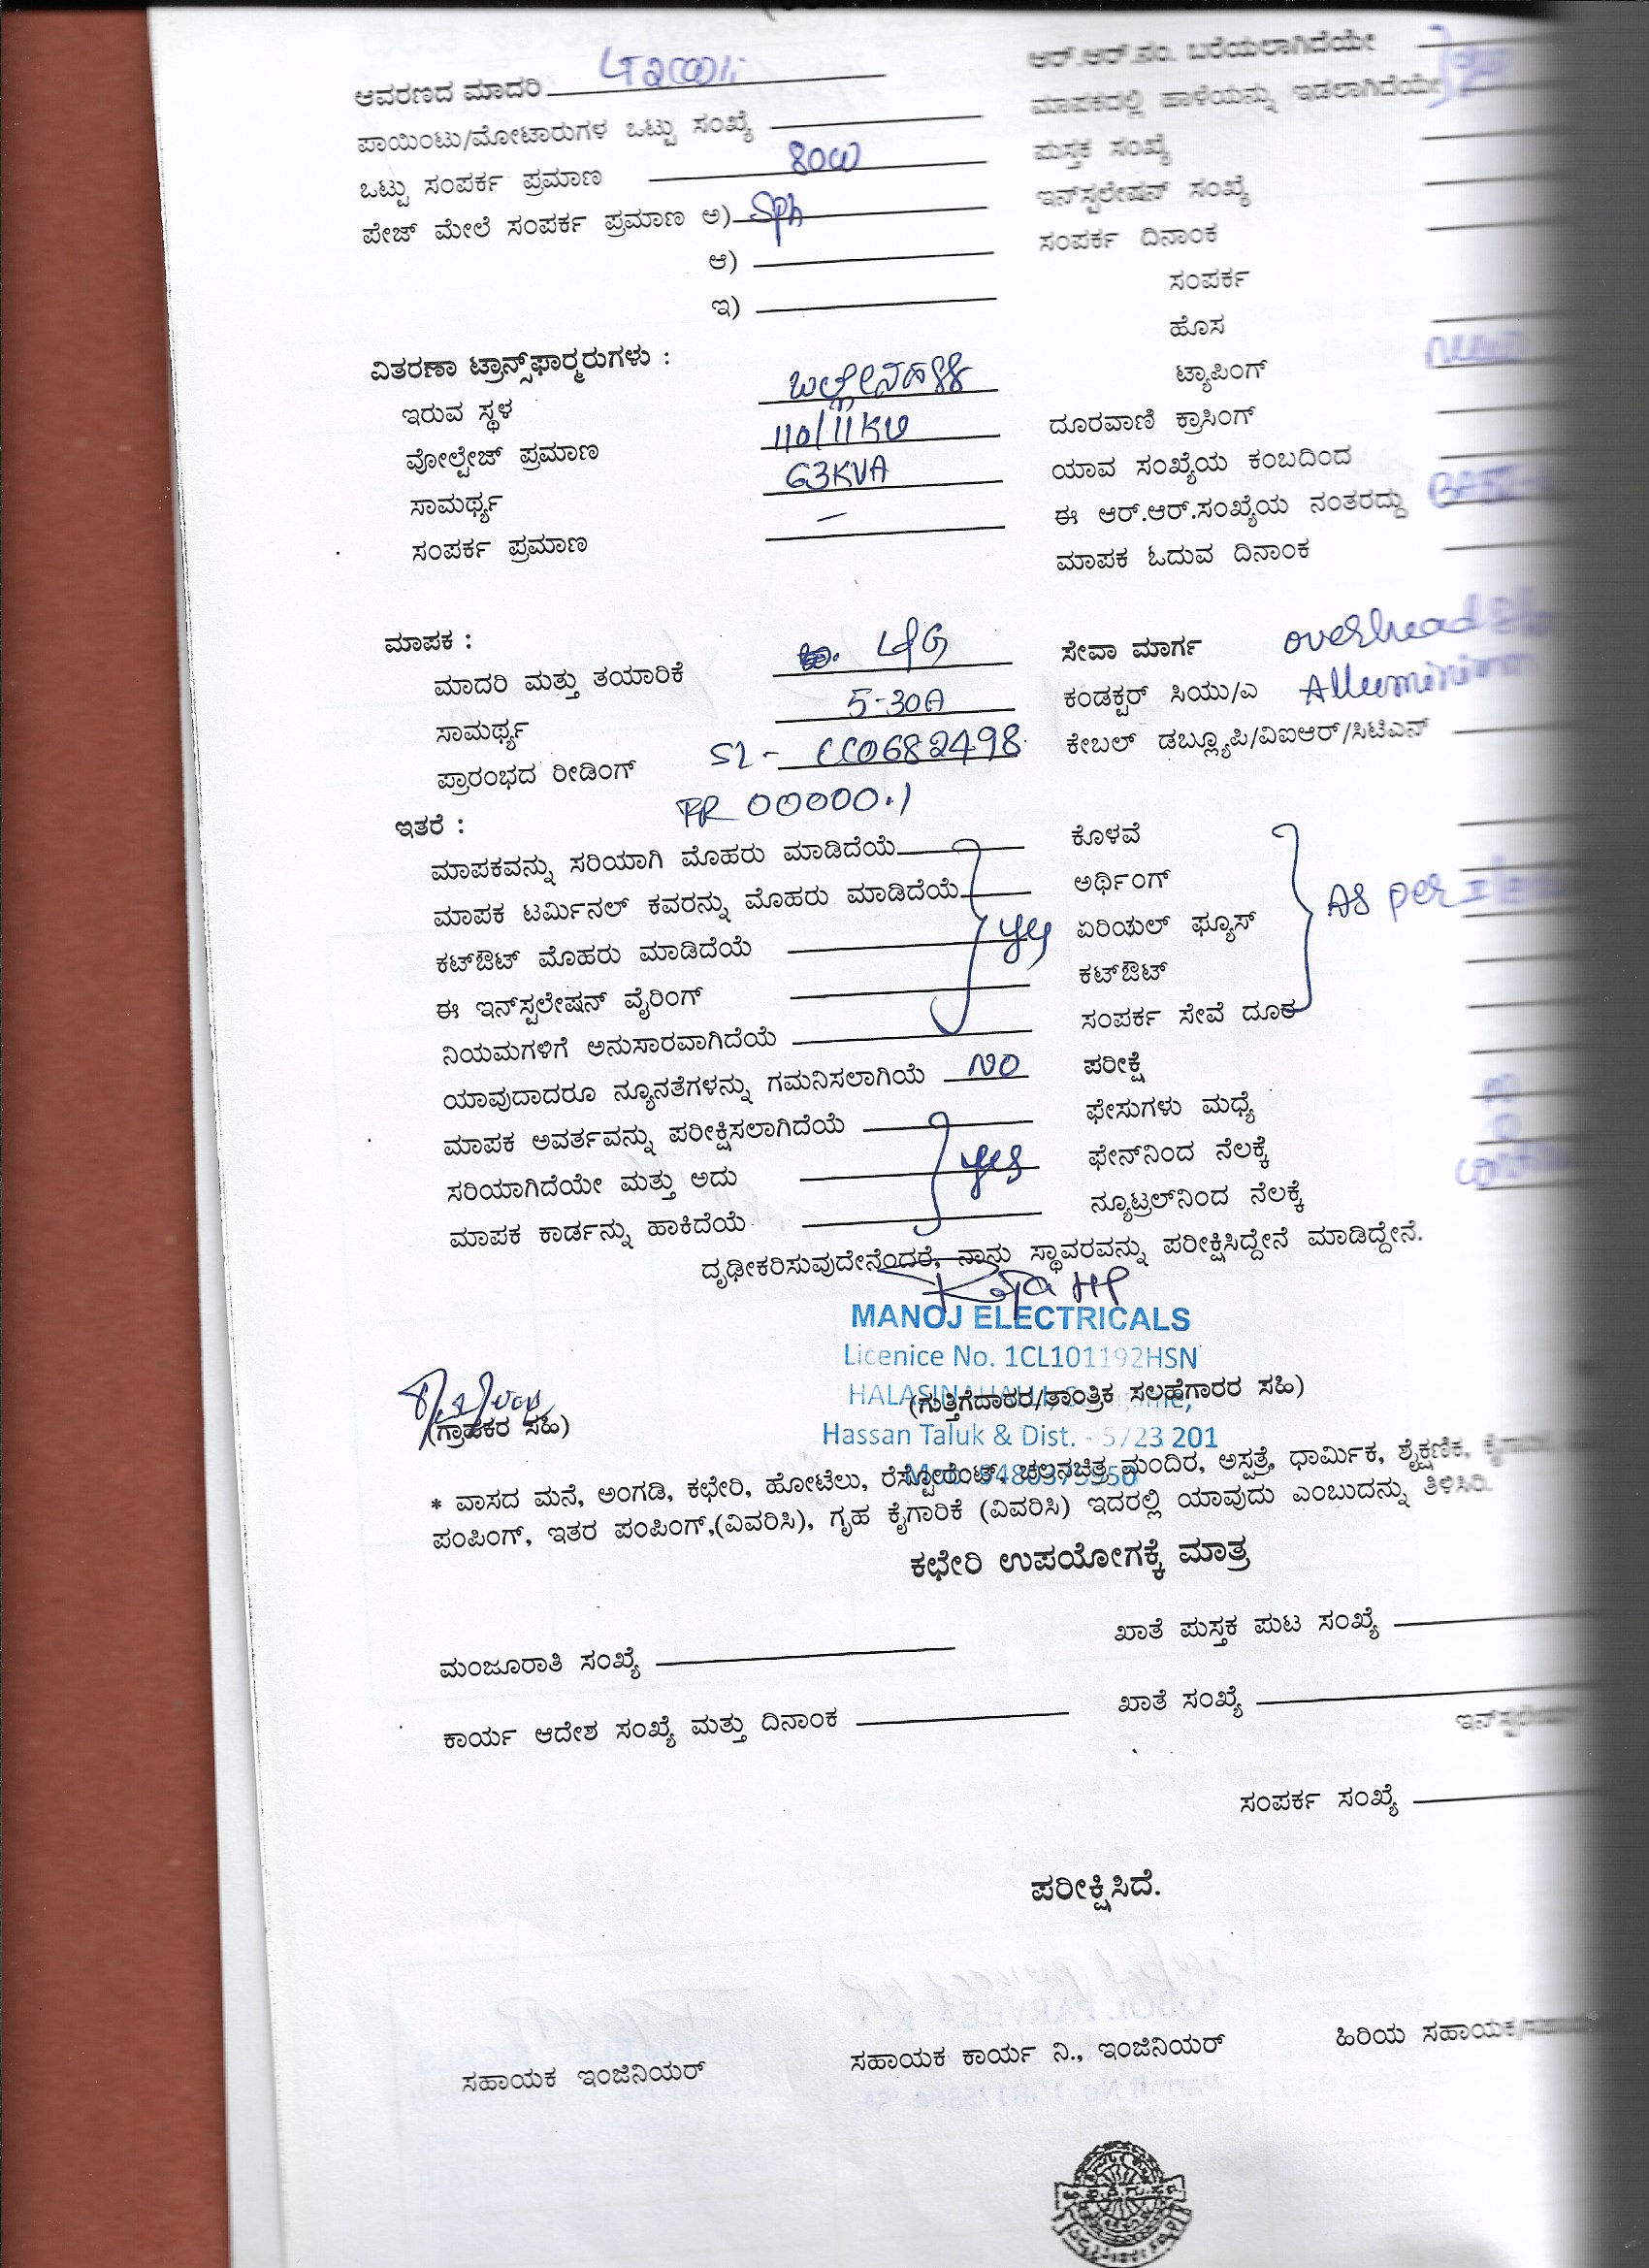 ಆವರಣದ ಮಾದರಿ
ಪಾಯಿಂಟು/ಮೋಟಾರುಗಳ ಒಟ್ಟು ಸಂಖ್ಯೆ
ಒಟ್ಟು ಸಂಪರ್ಕ ಪ್ರಮಾಣ 80W
ಪೇಜ್ ಮೇಲೆ ಸಂಪರ್ಕ ಪ್ರಮಾಣ ಅ) Sph
ಆ)
ಇ)
ವಿತರಣಾ ಟ್ರಾನ್ಸ್‌ಫಾರ್ಮರುಗಳು :
ಇರುವ ಸ್ಥಳ
ವೋಲ್ಟೇಜ್ ಪ್ರಮಾಣ 110/11KV
ಸಾಮರ್ಥ್ಯ 63KVA
ಸಂಪರ್ಕ ಪ್ರಮಾಣ –
ಮಾಪಕ :
ಮಾದರಿ ಮತ್ತು ತಯಾರಿಕೆ L&G
ಸಾಮರ್ಥ್ಯ 5-30A
ಪ್ರಾರಂಭದ ರೀಡಿಂಗ್ SL - CC0682498
FR 00000.1
ಇತರೆ :
ಮಾಪಕವನ್ನು ಸರಿಯಾಗಿ ಮೊಹರು ಮಾಡಿದೆಯೆ
ಮಾಪಕ ಟರ್ಮಿನಲ್ ಕವರನ್ನು ಮೊಹರು ಮಾಡಿದೆಯೆ
ಕಟ್‌ಔಟ್ ಮೊಹರು ಮಾಡಿದೆಯೆ yes
ಈ ಇನ್‌ಸ್ಟಲೇಷನ್ ವೈರಿಂಗ್
ನಿಯಮಗಳಿಗೆ ಅನುಸಾರವಾಗಿದೆಯೆ
ಯಾವುದಾದರೂ ನ್ಯೂನತೆಗಳನ್ನು ಗಮನಿಸಲಾಗಿಯೆ NO
ಮಾಪಕ ಅವರ್ತವನ್ನು ಪರೀಕ್ಷಿಸಲಾಗಿದೆಯೆ
ಸರಿಯಾಗಿದೆಯೇ ಮತ್ತು ಅದು yes
ಮಾಪಕ ಕಾರ್ಡನ್ನು ಹಾಕಿದೆಯೆ
ಆರ್.ಆರ್.ನಂ. ಬರೆಯಲಾಗಿದೆಯೇ
ಮಾಪಕದಲ್ಲಿ ಹಾಳೆಯನ್ನು ಇಡಲಾಗಿದೆಯೇ
ಪುಸ್ತಕ ಸಂಖ್ಯೆ
ಇನ್‌ಸ್ಟಲೇಷನ್ ಸಂಖ್ಯೆ
ಸಂಪರ್ಕ ದಿನಾಂಕ
ಸಂಪರ್ಕ
ಹೊಸ
ಟ್ಯಾಪಿಂಗ್
ದೂರವಾಣಿ ಕ್ರಾಸಿಂಗ್
ಯಾವ ಸಂಖ್ಯೆಯ ಕಂಬದಿಂದ
ಈ ಆರ್.ಆರ್.ಸಂಖ್ಯೆಯ ನಂತರದ್ದು
ಮಾಪಕ ಓದುವ ದಿನಾಂಕ
ಸೇವಾ ಮಾರ್ಗ overhead
ಕಂಡಕ್ಟರ್ ಸಿಯು/ಎ Alluminium
ಕೇಬಲ್ ಡಬ್ಲ್ಯೂಪಿ/ವಿಐಆರ್/ಸಿಟಿಎನ್
ಕೊಳವೆ
ಅರ್ಥಿಂಗ್ As per
ಏರಿಯಲ್ ಫ್ಯೂಸ್
ಕಟ್‌ಔಟ್
ಸಂಪರ್ಕ ಸೇವೆ ದೂರ
ಪರೀಕ್ಷೆ
ಫೇಸುಗಳು ಮಧ್ಯೆ
ಫೇನ್‌ನಿಂದ ನೆಲಕ್ಕೆ
ನ್ಯೂಟ್ರಲ್‌ನಿಂದ ನೆಲಕ್ಕೆ
ದೃಢೀಕರಿಸುವುದೇನೆಂದರೆ, ನಾನು ಸ್ಥಾವರವನ್ನು ಪರೀಕ್ಷಿಸಿದ್ದೇನೆ ಮಾಡಿದ್ದೇನೆ.
MANOJ ELECTRICALS
Licenice No. 1CL101192HSN
(ಗುತ್ತಿಗೆದಾರರ/ತಾಂತ್ರಿಕ ಸಲಹೆಗಾರರ ಸಹಿ)
(ಗ್ರಾಹಕರ ಸಹಿ)
Hassan Taluk & Dist. - 5723 201
* ವಾಸದ ಮನೆ, ಅಂಗಡಿ, ಕಛೇರಿ, ಹೋಟೆಲು, ರೆಸ್ಟೋರೆಂಟ್, ಚಲನಚಿತ್ರ ಮಂದಿರ, ಅಸ್ಪತ್ರೆ, ಧಾರ್ಮಿಕ, ಶೈಕ್ಷಣಿಕ,
ಪಂಪಿಂಗ್, ಇತರ ಪಂಪಿಂಗ್,(ವಿವರಿಸಿ), ಗೃಹ ಕೈಗಾರಿಕೆ (ವಿವರಿಸಿ) ಇದರಲ್ಲಿ ಯಾವುದು ಎಂಬುದನ್ನು ತಿಳಿಸಿರಿ.
ಕಛೇರಿ ಉಪಯೋಗಕ್ಕೆ ಮಾತ್ರ
ಮಂಜೂರಾತಿ ಸಂಖ್ಯೆ
ಖಾತೆ ಪುಸ್ತಕ ಪುಟ ಸಂಖ್ಯೆ
ಕಾರ್ಯ ಆದೇಶ ಸಂಖ್ಯೆ ಮತ್ತು ದಿನಾಂಕ
ಖಾತೆ ಸಂಖ್ಯೆ
ಸಂಪರ್ಕ ಸಂಖ್ಯೆ
ಪರೀಕ್ಷಿಸಿದೆ.
ಸಹಾಯಕ ಇಂಜಿನಿಯರ್
ಸಹಾಯಕ ಕಾರ್ಯ ನಿ., ಇಂಜಿನಿಯರ್
ಹಿರಿಯ ಸಹಾಯಕ